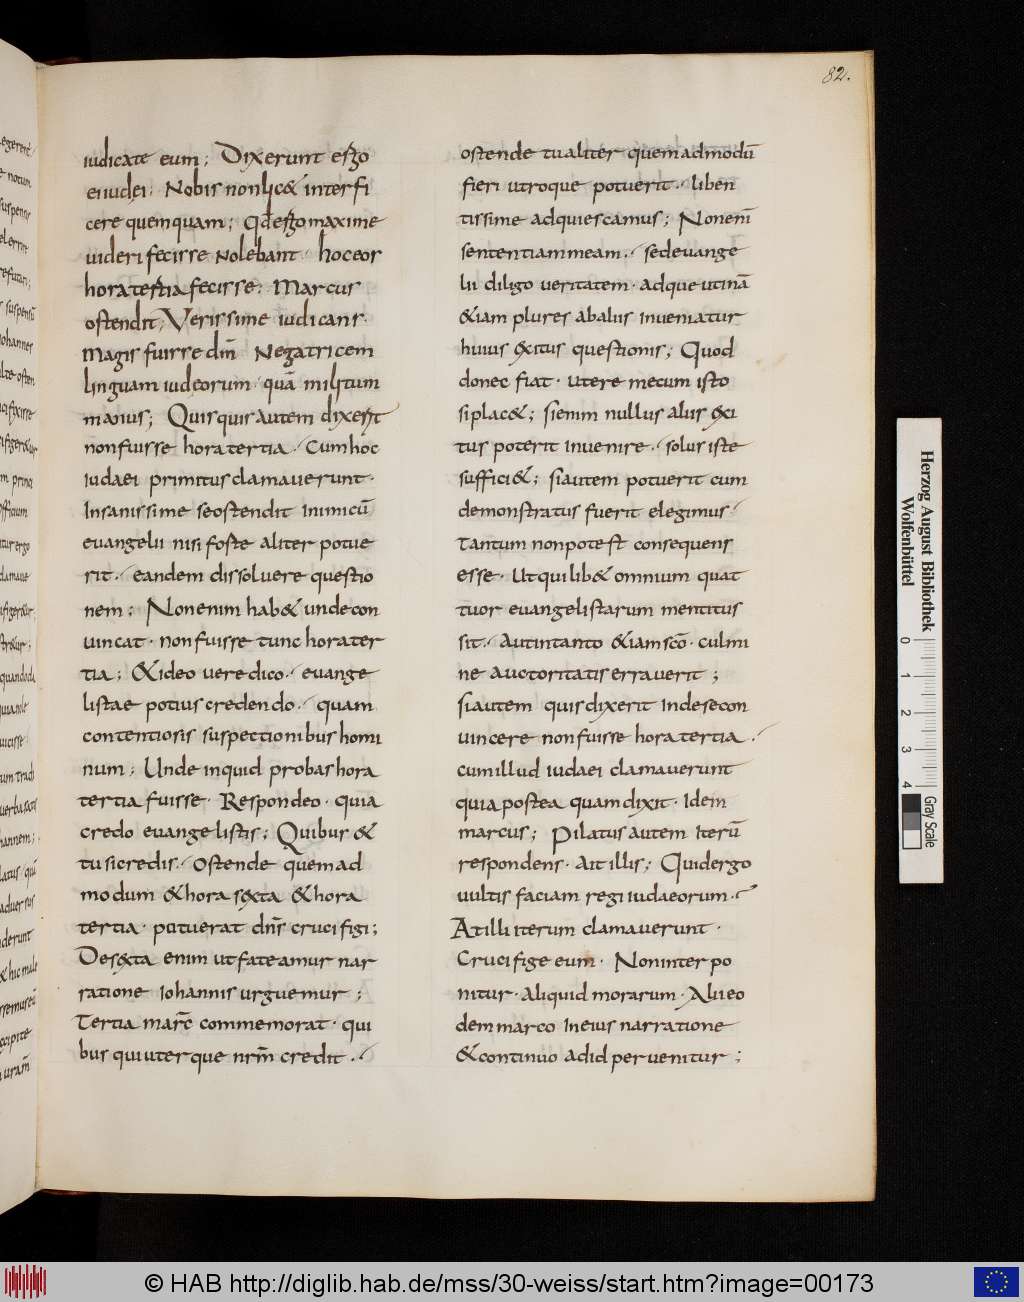 82.
iudicate eum; Dixerunt ergo
ei iudei· Nobis non lic& interfi
cere quemquam; Qd ergo maxime
uideri fecisse nolebant· hoc eos
hora tertia fecisse· Marcus
ostendit; Verissime iudicans·
magis fuisse dnī Negatricem
linguam iudeorum· quā militum
manus; Quisquis autem dixerit
non fuisse hora tertia· Cum hoc
iudaei primitus clamauerunt·
Insanissime se ostendit inimicū
euangelii nisi forte aliter potue
rit· eandem dissoluere questio
nem; Non enim hab& unde con
uincat· non fuisse tunc hora ter
tia; & ideo ueredico· euange
listae potius credendo· quam
contentiosis suspectionibus homi
num; Unde inquid probas hora
tertia fuisse· Respondeo· quia
credo euangelistis; Quibus &
tu si credis· Ostende quemad
modum & hora sexta & hora
tertia· potuerat dns̄ crucifigi;
De sexta enim ut fateamur nar
ratione Iohannis urguemur;
Tertia marc̄ commemorat· qui
bus qui uterque nrm̄ credit·
ostende tu aliter quemadmodū
fieri utroque potuerit· liben
tissime adquiescamus; Non enī
sententiam meam· sed euange
lii diligo ueritatem· adque utinā
&iam plures ab aliis inueniatur
huius exitus questionis; Quod
donec fiat· utere mecum isto
si plac&; si enim nullus alius exi
tus poterit inuenire· solus iste
suffici&; si autem potuerit cum
demonstratus fuerit elegimus·
Tantum non potest consequens
esse· Ut quilib& omnium quat
tuor euangelistarum mentitus
sit· aut in tanto &iam scō· culmi
ne auctoritatis errauerit;
si autem quis dixerit inde se con
uincere non fuisse hora tertia·
cum illud iudaei clamauerunt
quia postea quam dixit· Idem
marcus; Pilatus autem iterū
respondens· ait illis; Quid ergo
uultis faciam regi iudaeorum·
At illi iterum clamauerunt·
Crucifige eum· Non interpo
nitur· aliquid morarum· Ab eo
dem marco in eius narratione
& continuo ad id peruenitur;
Herzog August Bibliothek
Wolfenbüttel
0 1 2 3 4
Gray Scale
© HAB http://diglib.hab.de/mss/30-weiss/start.htm?image=00173